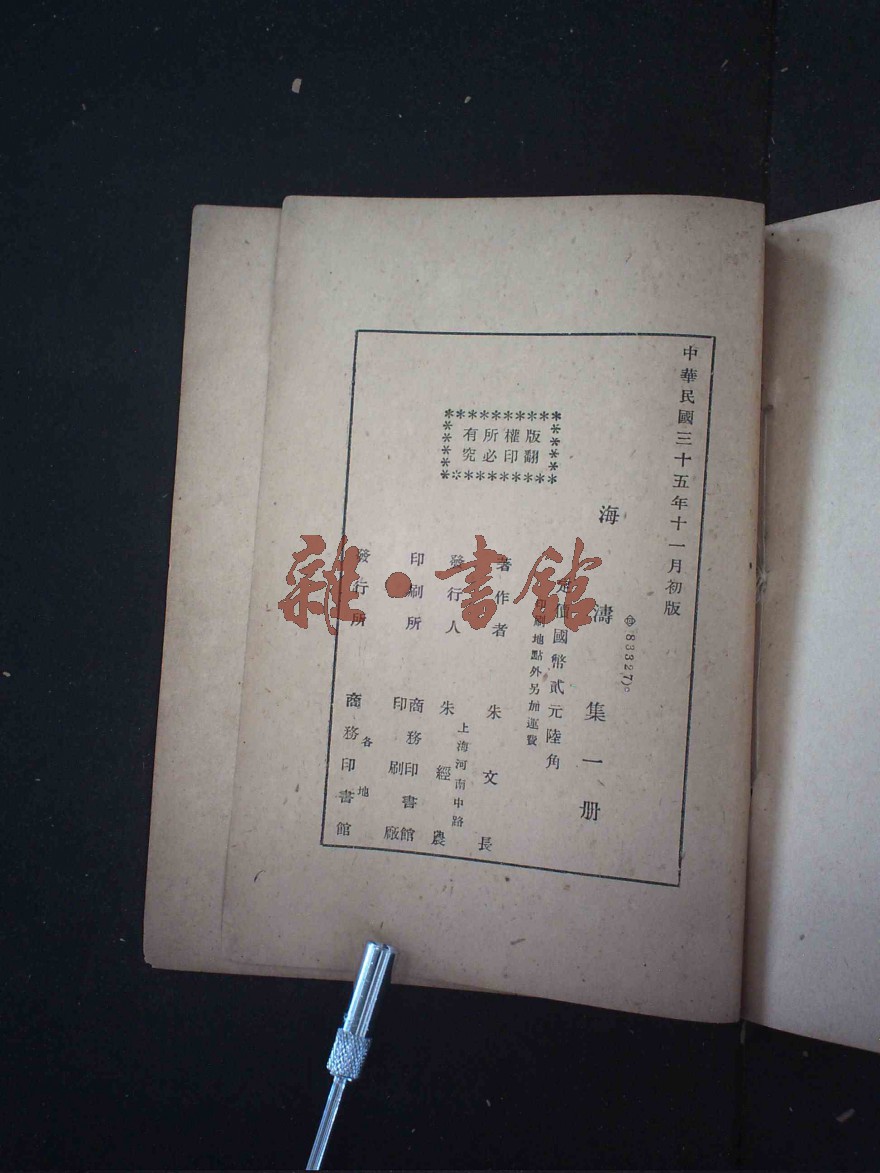 中華民國三十五年十一月初版
83327)。
海濤集一册
定價國幣貳元陸角
印刷地點外另加運費
版權所有
翻印必究
著作者 朱文長
上海河南中路
發行人 朱經農
印刷所 商務印書館
印刷廠
各地
發行所 商務印書館
雜·書館